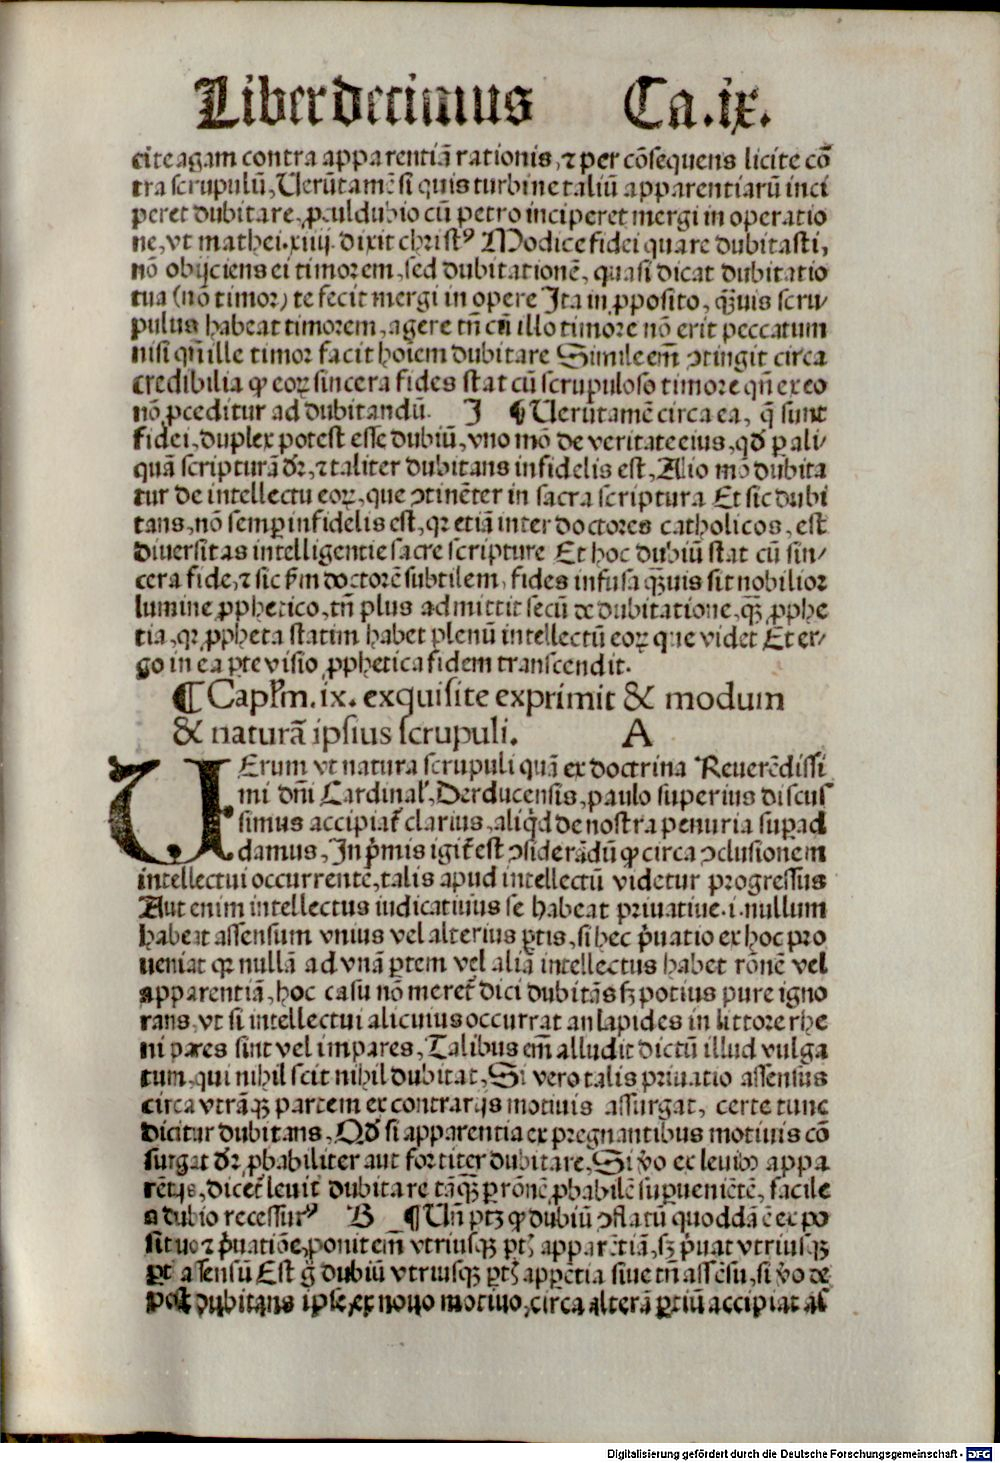 Liber decimus Ca.ix.
cite agam contra apparentiā rationis, ⁊ per cōsequens licite cō
tra scrupulū, Uerūtamē si quis turbine taliū apparentiarū inci
peret dubitare, ꝓculdubio cū petro inciperet mergi in operatio
ne, vt mathei.xiiij. dixit christꝰ Modice fidei quare dubitasti,
nō obijciens ei timorem, sed dubitationē, quasi dicat dubitatio
tua (nō timor) te fecit mergi in opere Ita in ꝓposito, qāuis scru/
pulus habeat timorem, agere tn̄ cū illo timore nō erit peccatum
nisi qn̄ ille timor facit hoiem dubitare Simile em̄ ↄtingit circa
credibilia ꝙ eoꝝ sincera fides stat cū scrupuloso timore qn̄ ex eo
nō ꝓceditur ad dubitandū. J ¶ Uerūtamē circa ea, q̄ sunt
fidei, duplex potest esse dubiū, vno mō de veritate eius, qd̄ ꝑ ali/
quā scripturā dr̄, ⁊ taliter dubitans infidelis est, Alio mō dubita
tur de intellectu eoꝝ, que ↄtinēter in sacra scriptura Et sic dubi
tans, nō semꝑ infidelis est, qꝛ etiā inter doctores catholicos, est
diuersitas intelligentie sacre scripture Et hoc dubiū stat cū sin/
cera fide, ⁊ sic ẜm doctorē subtilem, fides infusa qāuis sit nobilior
lumine ꝓphetico, tn̄ plus admittit secū de dubitatione, qā ꝓphe
tia, qꝛ ꝓpheta statim habet plenū intellectū eoꝝ que videt Et er/
go in ea ꝑte visio ꝓphetica fidem transcendit.
¶ Capl̄m.ix. exquisite exprimit & modum
& naturā ipsius scrupuli. A
UErum vt natura scrupuli quā ex doctrina Reuerēdissi
mi dn̄i Cardinal̓, Derducensis, paulo superius discus
simus accipiat̄ clarius, aliqd̓ de nostra penuria suꝑad
damus, In p̓mis igit̄ est ↄsiderādū ꝙ circa ↄclusionem
intellectui occurrentē, talis apud intellectū videtur progressus
Aut enim intellectus iudicatiuus se habeat priuatiue.i.nullum
habeat assensum vnius vel alterius ꝑtis, si hec p̓uatio ex hoc pro
ueniat qꝛ nullā ad vnā ꝑtem vel aliā intellectus habet rōnē vel
apparentiā, hoc casu nō meret̄ dici dubitās sꝫ potius pure igno
rans, vt si intellectui alicuius occurrat an lapides in littore rhe
ni pares sint vel impares, Talibus em̄ alludit dictū illud vulga
tum, qui nihil scit nihil dubitat, Si vero talis priuatio assensus
circa vtrāqꝫ partem ex contrarijs motiuis assurgat, certe tunc
dicitur dubitans, Qd̄ si apparentia ex pregnantibus motiuis cō
surgat dr̄ ꝓbabiliter aut fortiter dubitare, Si v̓o ex leuibꝰ appa
rētijs, dicet̄ leuit̓ dubitare tāqā ꝑ rōnē ꝓbabilē suꝑueniētē, facile
a dubio recessurꝰ B ¶ Un̄ ptꝫ ꝙ dubiū ↄflatū quoddā ē ex po
sitiuo ⁊ p̓uatiōe, ponit em̄ vtriusqꝫ ꝑtꝭ apparētiā, sꝫ p̓uat vtriusqꝫ
ꝑtꝭ assensū Est g̊ dubiū vtriusqꝫ ꝑtꝭ appētia siue tn̄ assēsu, si v̓o de
post dubitans ipse, ex nouo motiuo, circa alterā ꝑtiū accipiat as
Digitalisierung gefördert durch die Deutsche Forschungsgemeinschaft - DFG